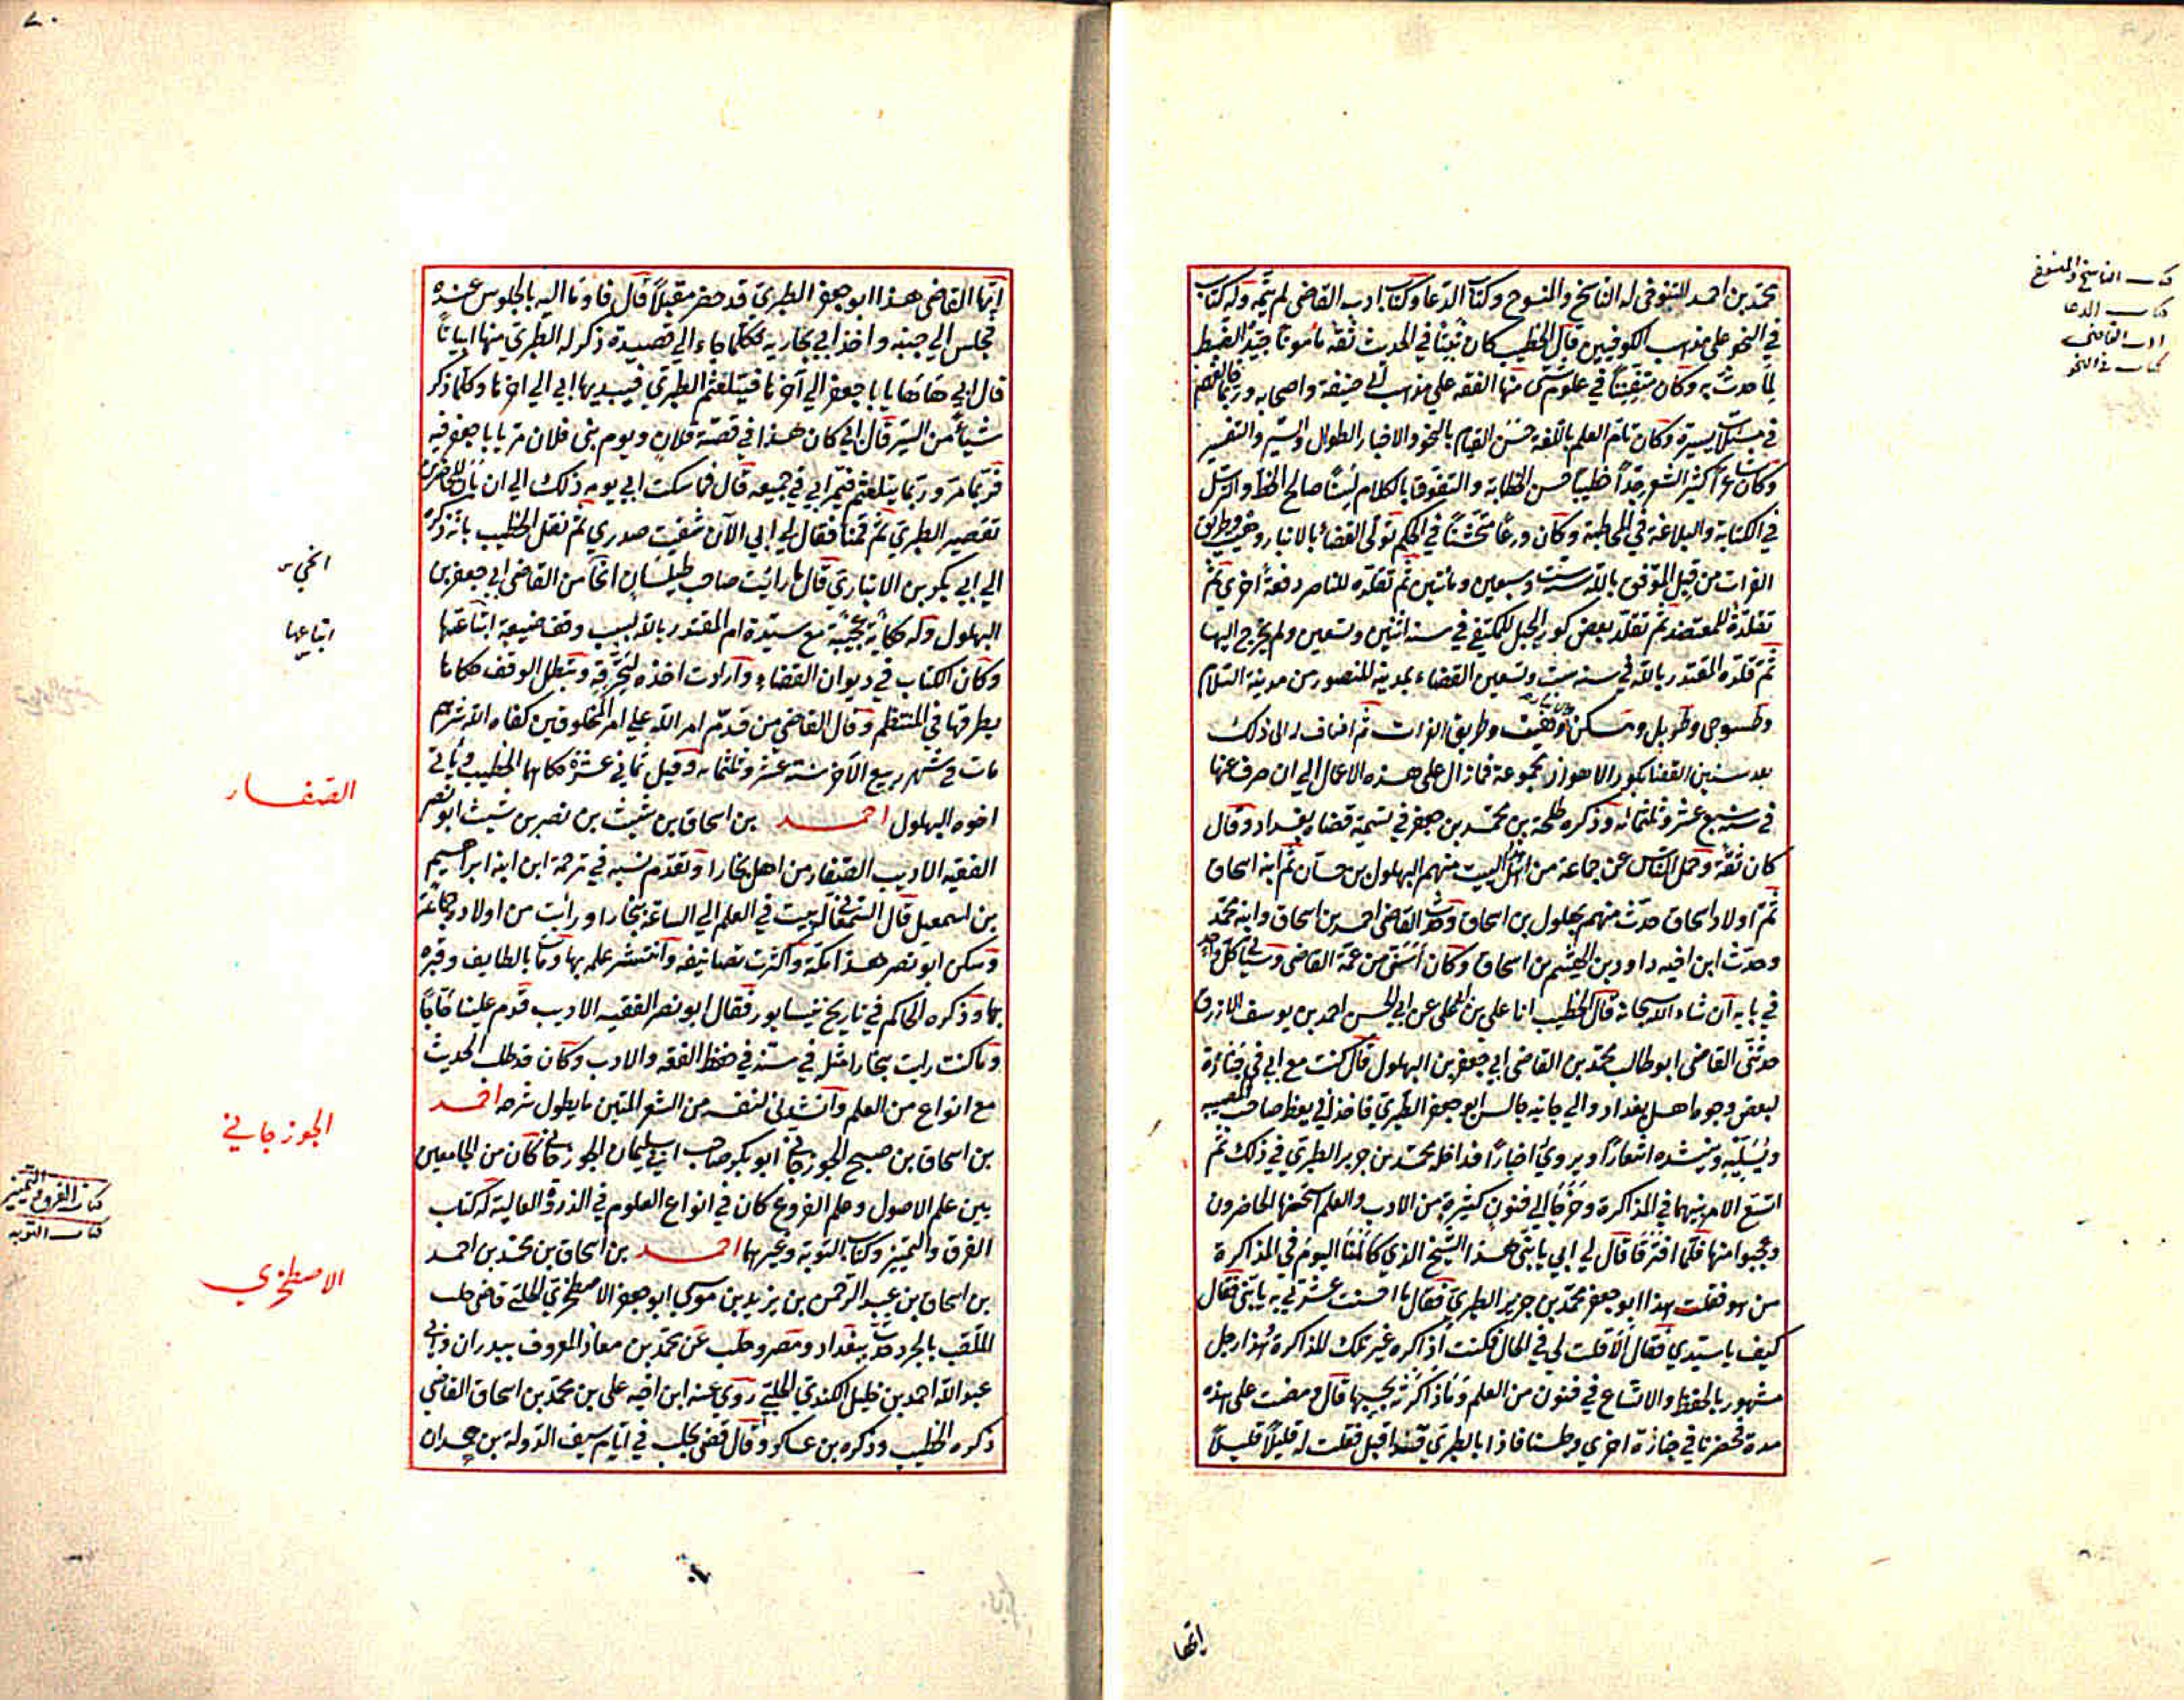 محمد بن احمد التنوخي له الناسخ والمنسوخ وكتاب الدعا وكتاب ادب القاضي لم يتمه وله كتاب
في النحو على مذهب الكوفيين قال الخطيب كان ثبتا في الحديث ثقة مأمونا جيد الضبط
لما حدث به وكان متفننا في علوم شتى منها الفقه على مذهب ابي حنيفة واصحابه وربما خالفهم
في مسئلات يسيرة وكان تام العلم باللغة حسن القيام بالنحو والاخبار الطوال والسير والتفسير
وكان شاعرا كثير الشعر جدا خطيبا حسن الخطابة والتفوه بالكلام لسنا صالح الخط والترسل
في الكتابة والبلاغة في المخاطبة وكان ورعا متخشنا في الحكم تولى القضاء بالانبار وهيت وطريق
الفرات من قبل الموفق بالله سنة ست وسبعين ومأتين ثم تقلده للناصر دفعة أخرى ثم
تقلده للمعتضد ثم تقلد بعض كور الجبل للمكتفي في سنة اثنين وتسعين ولم يخرج اليها
ثم قلده المقتدر بالله في سنة ست وتسعين القضاء بمدينة المنصور من مدينة السلام
وطسوجي قطربل ومسكن وهيت وطريق الفرات ثم اضاف له الى ذلك
بعد سنين القضا بكور الاهواز مجموعة فمازال على هذه الاعمال الى ان صرف عنها
في سنة سبع عشر وثلثمائة وذكره طلحة بن محمد بن جعفر في تسمية قضاة بغداد وقال
كان ثقة وحمل الناس عن جماعة من اهل البيت منهم البهلول بن حسان ثم ابنه اسحاق
ثم اولاد اسحاق حدث منهم بهلول بن اسحاق وحدث القاضي احمد بن اسحاق وابنه محمد
وحدث ابن اخيه داود بن الهيثم بن اسحاق وكان اسن من عمه القاضي وسيأتي كل واحد
في بابه ان شاء الله سبحانه قال الخطيب انا علي بن المحلى عن ابي الحسن احمد بن يوسف الازرق
حدثني القاضي ابو طالب محمد بن القاضي ابي جعفر بن البهلول قال كنت مع ابي في جنازة
لبعض وجوه اهل بغداد والى جانبه جالس ابو جعفر الطبري فاخذ ابي يعظ صاحب المصيبة
ويسليه وينشده اشعارا ويروي اخبارا فداخله محمد بن جرير الطبري في ذلك ثم
اتسع الامر بينهما في المذاكرة وخرجا الى فنون كثيرة من الادب والعلم استحسنها الحاضرون
وعجبوا منها فلما افترقا قال لي ابي يا بني هذا الشيخ الذي كالمنا اليوم في المذاكرة
من هو فقلت هذا ابو جعفر محمد بن جرير الطبري فقال ما احسنت عشرتي به يا بني فقال
كيف يا سيدي فقال الا قلت لي في الحال فكنت اذاكره غير تلك المذاكرة هذا رجل
مشهور بالحفظ والاتساع في فنون من العلم وما ذاكرته بحسبها قال ومضت على هذه
مدة فحضرنا في جنازة اخرى وجلسنا فاذا بالطبري قد اقبل فقلت له قليلا قليلا
انها
كتاب الناسخ والمنسوخ
كتاب الدعا
ادب القاضي
كتاب في النحو
ايها القاضي هذا ابو جعفر الطبري قد حضر مقبلا قال فاوما اليه بالجلوس عنده
فجلس الى جنبه واخذ ابي يجاريه فكلما جاء الى قصيدة ذكر له الطبري منها ابياتا
قال ابي هاتها يا با جعفر الى آخرها فيتلعثم الطبري فيبديها ابي الى اخرها وكلما ذكر
شيأ من السير قال ابي كان هذا في قصة فلان ويوم بني فلان مر يا با جعفر فيه
فربما مر وربما يتلعثم فيمر ابي في جميعه قال فما سكت ابي يومه ذلك الى ان بان للحاضرين
تقصير الطبري ثم قمنا فقال لي ابي الآن شفيت صدري ثم نقل الخطيب بانه ذكره
الى ابي بكر بن الانباري قال ما رأيت صاحب طيلسان انحا من القاضي ابي جعفر بن
البهلول وله حكاية عجيبة مع سيدة ام المقتدر بالله بسبب وقف ضيعة ابتاعتها
وكان الكتاب في ديوان القضاء وارادت اخذه لتخرقه وتبطل الوقف حكاها
بطرقها في المنتظم وقال القاضي من قدم امر الله على امر المخلوقين كفاه الله شرهم
مات في شهر ربيع الآخر سنة عشر وثلثمائة وقيل ثماني عشرة حكاها الخطيب ويأتي
اخوه البهلول احمد بن اسحاق بن شيث بن نصر بن شيث ابو نصر
الفقيه الاديب الصفار من اهل بخارا وتقدم نسبه في ترجمة ابن ابنه ابراهيم
بن اسمعيل قال السمعاني له بيت في العلم الى الساعة ببخارا ورأيت من اولاده جماعة
وسكن ابو نصر هذا مكة واكثرت تصانيفه وانتشر علمه بها ومات بالطايف وقبره
بها وذكره الحاكم في تاريخ نيسابور فقال ابو نصر الفقيه الاديب قدم علينا حاجا
وما كنت رايت ببخارا مثله في سنه في حفظ الفقه والادب وكان قد طلب الحديث
مع انواع من العلم وانشدني لنفسه من الشعر المتين ما يطول شرحه احمد
بن اسحاق بن صبيح الجوزجاني ابو بكر صاحب ابي سليمان الجوزجاني كان من الجامعين
بين علم الاصول وعلم الفروع كان في انواع العلوم في الذروة العالية له كتاب
الفرق والتمييز وكتاب التوبة وغيرهما احمد بن اسحاق بن محمد بن احمد
بن اسحاق بن عبد الرحمن بن يزيد بن موسى ابو جعفر الاصطخري الحلبي قاضي حلب
الملقب بالجرد حدث ببغداد ومصر وحلب عن محمد بن معاذ المعروف ببدران وابي
عبد الله احمد بن خليل الكندي الحلبي روى عنه ابن اخيه علي بن محمد بن اسحاق القاضي
ذكره الخطيب وذكره بن عساكر وقال قضى بحلب في ايام سيف الدولة بن حمدان
انحى من
ابتاعها
الصفار
الجوزجاني
كتاب الفرق والتمييز
كتاب التوبة
الاصطخري